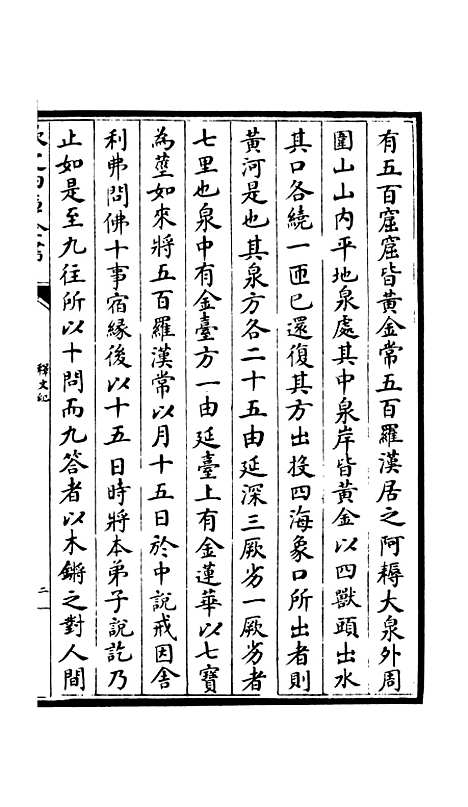 有五百窟窟皆黄金常五百羅漢居之阿耨大泉外周
圍山山内平地泉處其中泉岸皆黄金以四獸頭出水
其口各繞一匝已還復其方出投四海象口所出者則
黄河是也其泉方各二十五由延深三厥劣一厥劣者
七里也泉中有金臺方一由延臺上有金蓮華以七寶
為莖如來將五百羅漢常以月十五日於中說戒因舍
利弗問佛十事宿緣後以十五日時將本弟子說訖乃
止如是至九往所以十問而九答者以木鏘之對人間
釋文紀
二